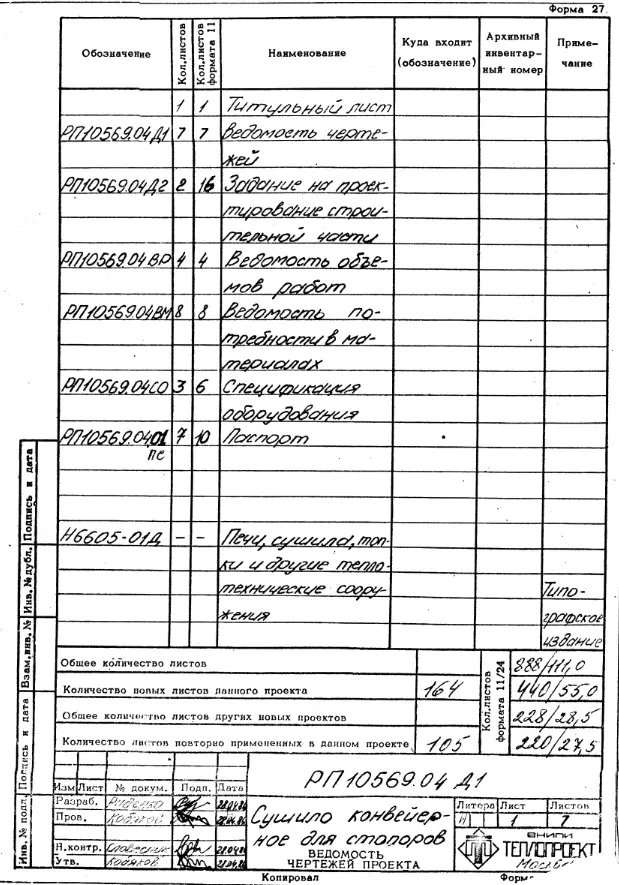 Форма 27
Обозначение Кол.листов Кол.листов формата 11 Наименование Куда входит (обозначение) Архивный инвентарный номер Приме-чание
1 1 Титульный лист
РП10569.04Д1 7 7 Ведомость черте-
жей
РП10569.04Д2 2 16 Задание на проек-
тирование строи-
тельной части
РП10569.04ВР 4 4 Ведомость объе-
мов работ
РП10569.04ВМ 8 8 Ведомость по-
требности в ма-
териалах
РП10569.04СО 3 6 Спецификация
оборудования
РП10569.04.01 7 10 Паспорт
ПС
Н6605-01Д – – Печи, сушила, топ-
ки и другие тепло-
технические соору-
жения
Типо-
графское
издание
Общее количество листов 888/111,0
Количество новых листов данного проекта 164 440/55,0
Общее количество листов других новых проектов 228/28,5
Количество листов повторно примененных в данном проекте 105 220/27,5
Кол.листов формата 11/24
Подпись и дата
Инв.№дубл.
Взам.инв.№
Подпись и дата
Инв.№ подл.
РП10569.04 Д1
Изм Лист № докум. Подп. Дата
Разраб.
Пров. Кобяков
Н.контр.
Утв. Кобяков
Сушило конвейер-
ное для стопоров
ВЕДОМОСТЬ
ЧЕРТЕЖЕЙ ПРОЕКТА
Литера Лист Листов
И 1 7
ВНИПИ
ТЕПЛОПРОЕКТ
Москва
Копировал
Форм